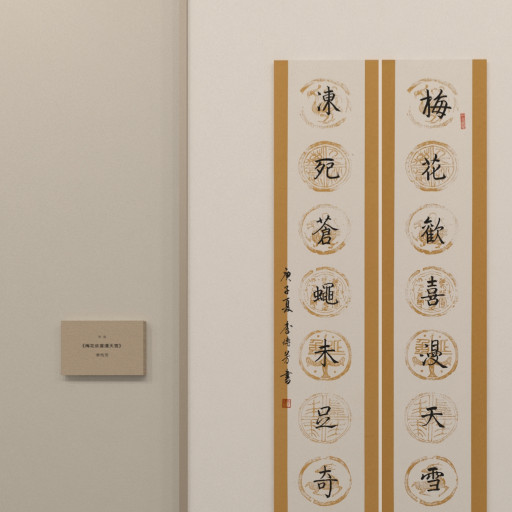 梅花歡喜漫天雪
凍死蒼蠅未足奇
庚子夏
書
《梅花欢喜漫天雪》